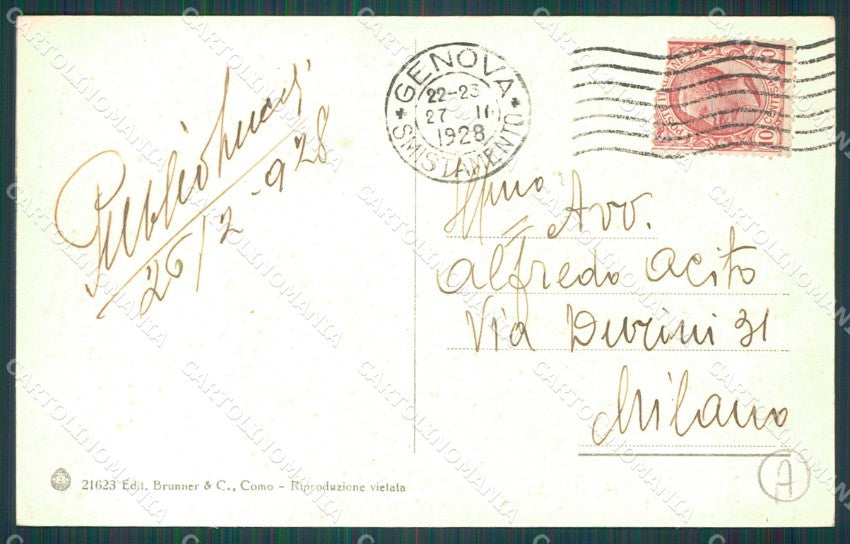 GENOVA
22-23
27 II
1928
SMISTAMENTO
26/2-928
Illmo Avv.
Alfredo Acito
Via Durini 31
Milano
A
21623 Edit. Brunner & C., Como - Riproduzione vietata
CARTOLINOMANIA